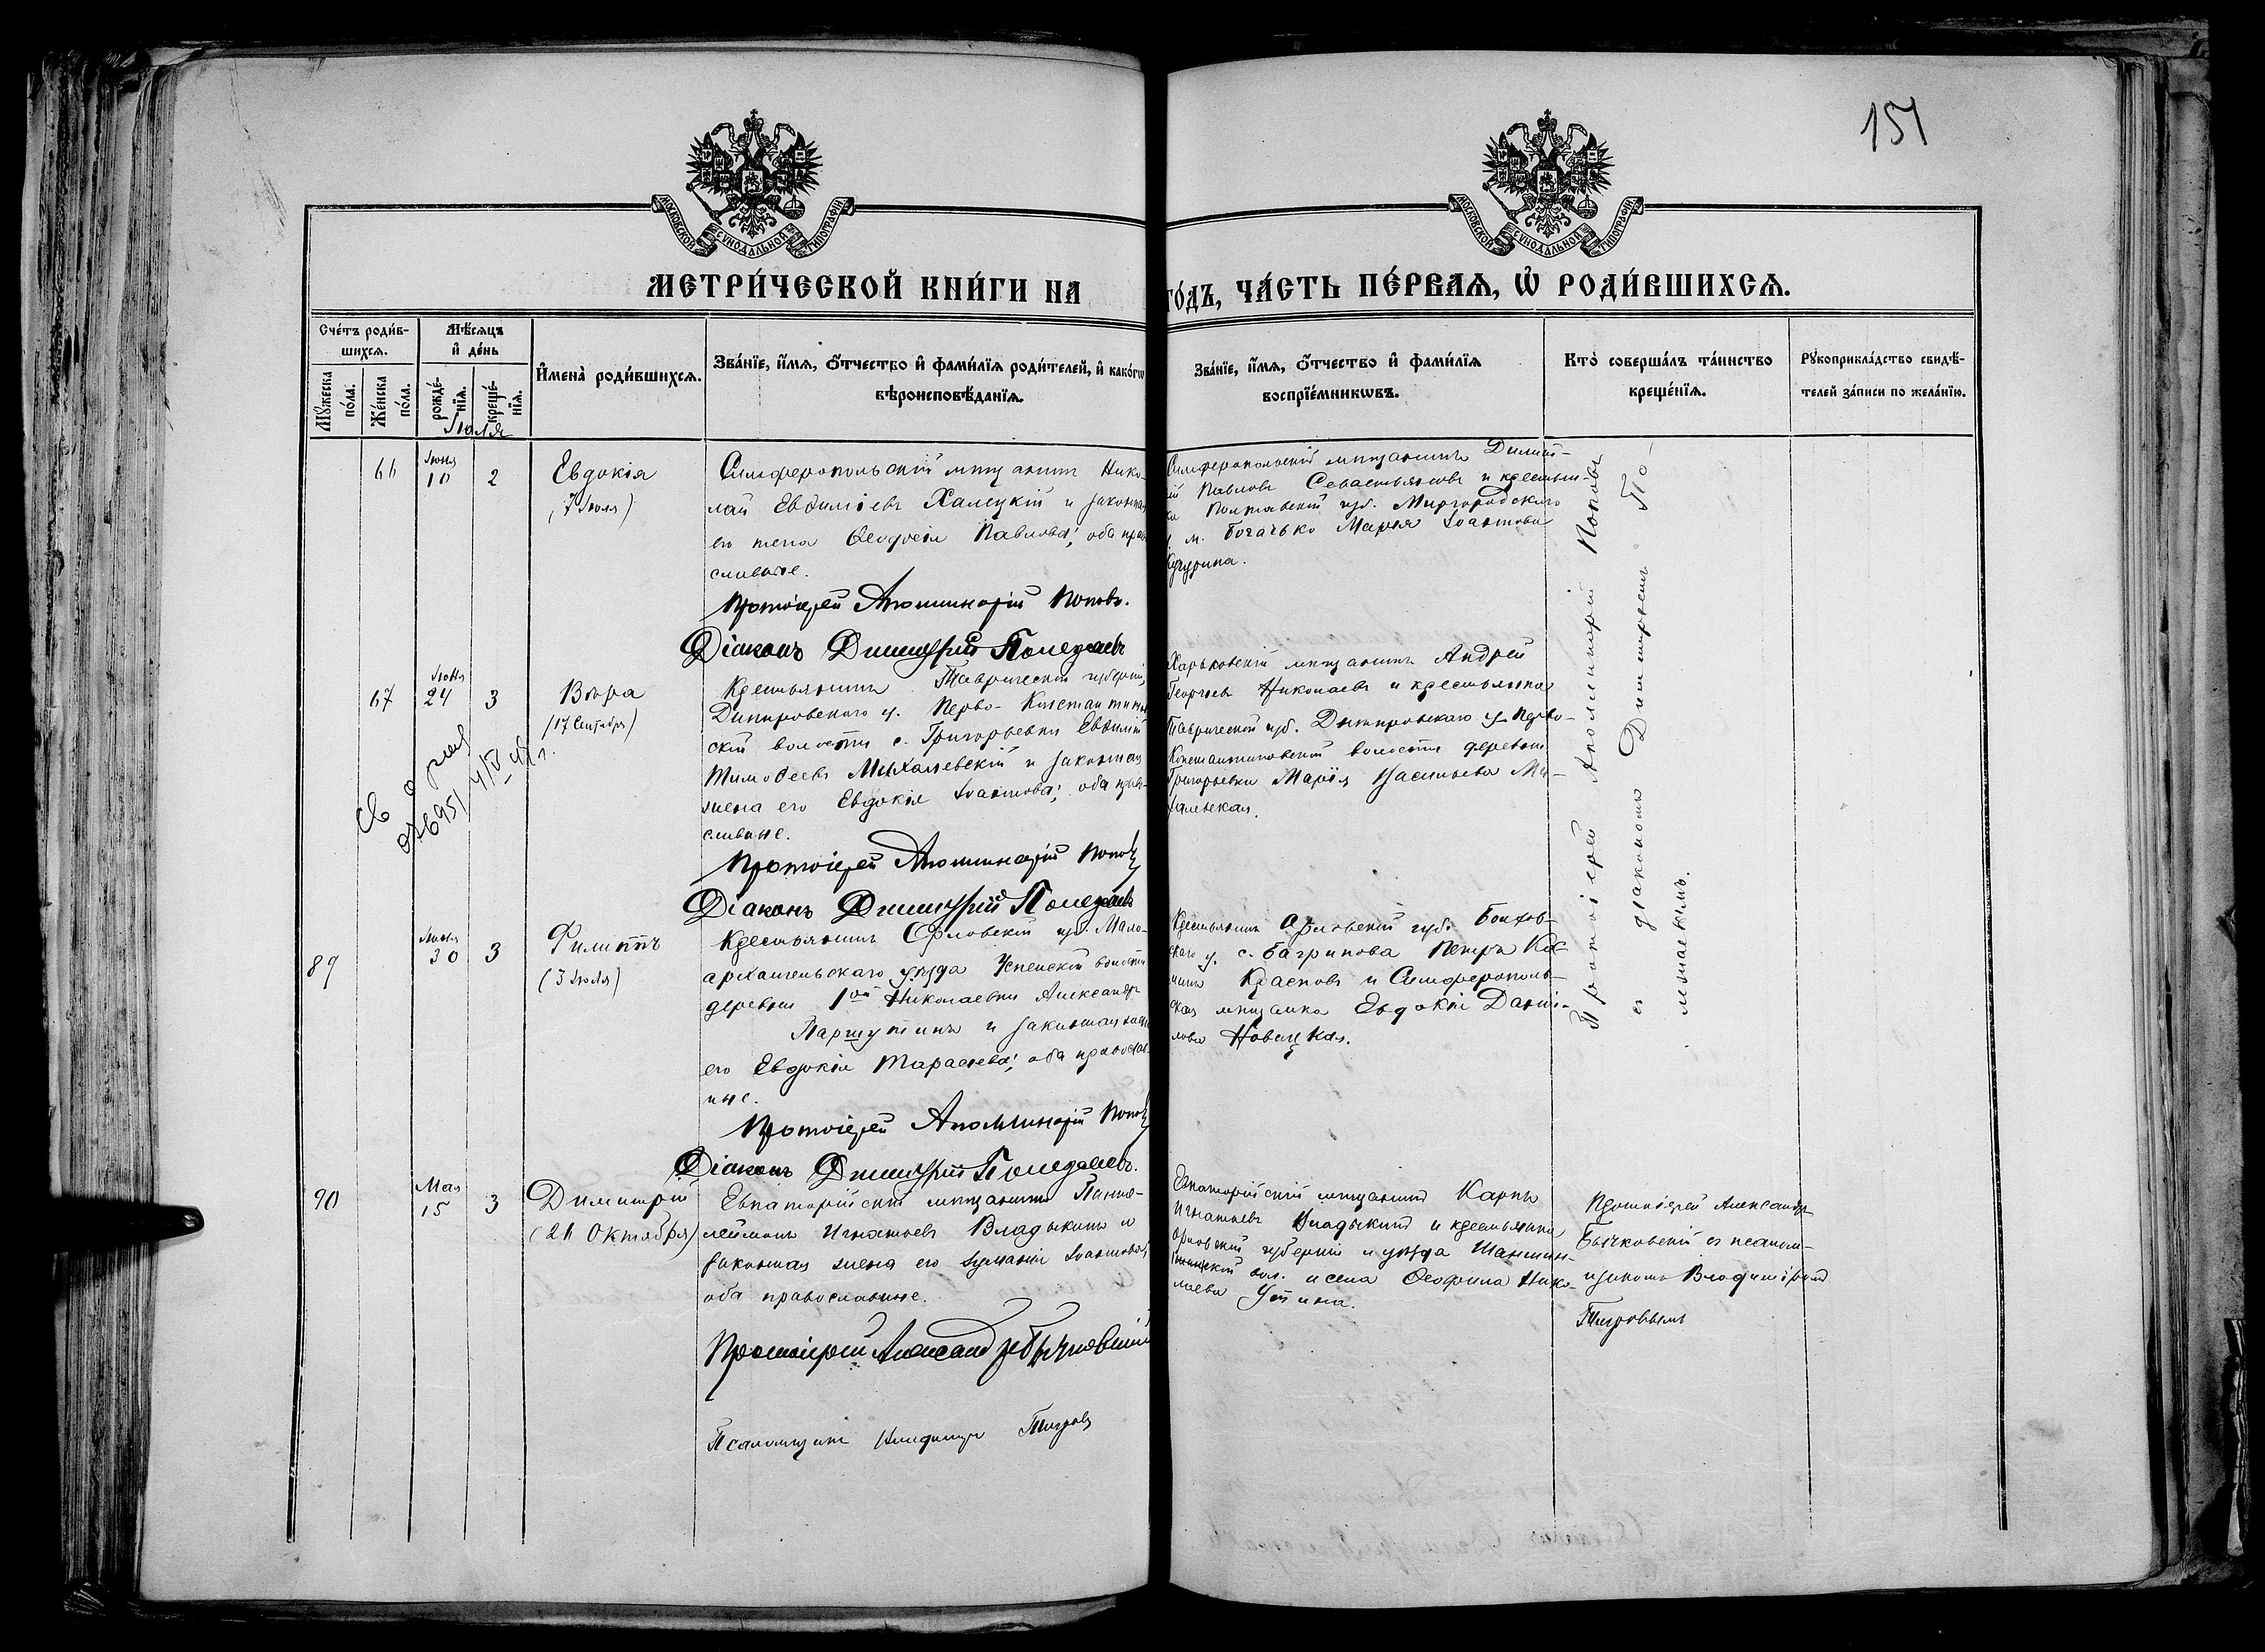 151
МОСКОВСКОЙ СУНОДАЛЬНОЙ ТИПОГРАФІИ
МОСКОВСКОЙ СУНОДАЛЬНОЙ ТИПОГРАФІИ
МЕТРИ́ЧЕСКОЙ КНИ́ГИ НА
ГО́ДЪ, ЧА́СТЬ ПЕ́РВАЯ, Ѡ҆ РОДИ́ВШИХСЯ.
Сче́тъ роди́в-
шихся.
Му́жеска
по́ла.
Же́нска
по́ла.
Мѣ́сяцъ
и҆ де́нь
рожде́-
нїя.
креще́-
нїя.
И҆мена̀ роди́вшихся.
Зва́нїе, и҆́мя, ѻ҆́тчество и҆ фами́лїя роди́телей, и҆ како́гѡ
вѣроисповѣ́данїя.
Зва́нїе, и҆́мя, ѻ҆́тчество и҆ фами́лїя
воспрїе́мникѡвъ.
Кто̀ соверша́лъ та́инство
креще́нїя.
Рꙋкоприкла́дство свидѣ́-
телей за́писи по жела́нїю.
Іюля
66
Іюня
10
2
Евдокія
(7 Іюля)
Симферопольскій мѣщанинъ Нико-
лай Евѳиміевъ Халецкій и законная
его жена Ѳеодосія Павлова; оба право-
славные.
Протоіерей Аполлинарій Поповъ.
Діаконъ Димитрій Полежаевъ
Симферопольскій мѣщанинъ Димит-
ій Павловъ Севастьяновъ и крестьян-
ка Полтавской губ. Миргородскаго
у. м. Богачька Марія Іоаннова
67
Іюня
24
3
Вѣра
(17 Сентября)
Св о рож
4/IV
Крестьянинъ Таврической губерніи,
Днѣпровскаго у. Перво-Константинов
ской волости с. Григорьевки Евѳимій
Тимоѳеевъ Михалевскій и законная
жена его Евдокія Іоаннова; оба право-
славные.
Протоіерей Аполлинарій Поповъ
Діаконъ Димитрій Полежаевъ
Харьковскій мѣщанинъ Андрей
Георгіевъ Николаевъ и крестьянка
Таврической губ. Днѣпровскаго у. Перво-
Константиновской волости деревни
Григорьевки Марія Васильева Ми-
89
Іюня
30
3
Филиппъ
(3 Іюля)
Крестьянинъ Орловской губ. Мало-
архангельскаго уѣзда Успенской волости
деревни 1ой Николаевки Александръ
Паршутинъ и законная жена
его Евдокія Тарасіева; оба православ-
ные.
Протоіерей Аполлинарій Поповъ
Діаконъ Димитрій Полежаевъ.
Крестьянинъ Орловской губ. Болхов-
скаго у. с. Багринова Петръ Кос
минъ Красновъ и Симферополь-
ская мѣщанка Евдокія Даніи-
лова Новицкая.
Протоіерей Аполлинарій Поповъ
съ діакономъ Димитріемъ По-
лежаевымъ.
90
Мая
15
3
Димитрій
(26 Октября)
Евпаторійскій мѣщанинъ Панте-
леймонъ Игнатьевъ Владыкинъ и
законная жена его Іуліанія Іоаннова;
оба православные.
Протоіерей Александръ Бычковскій
Псаломщикъ Владимиръ Тигровъ
Евпаторійскій мѣщанинъ Карпъ
Игнатьевъ Владыкинъ и крестьянка
Орловской губерніи и уѣзда
вол. и села Ѳеофила Нико-
лаева Устина.
Протоіерей Александръ
Бычковскій съ псалом-
щикомъ Владиміромъ
Тигровымъ